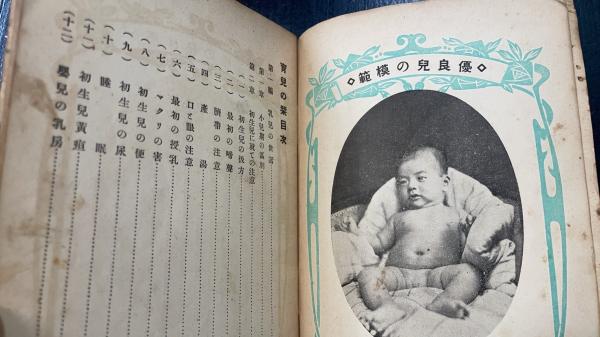 ◇優良兒の模範◇
育兒の栞目次
第一編　乳兒の世話
第一章　小兒期の區別
第二章　初生兒に就ての注意
（一）　初生兒の扱方
（二）　最初の啼聲
（三）　臍帶の注意
（四）　產湯
（五）　口と眼の注意
（六）　最初の授乳
（七）　マクリの害
（八）　初生兒の便
（九）　初生兒の尿
（十）　睡眠
（十一）　初生兒黃疸
（十二）　嬰兒の乳房